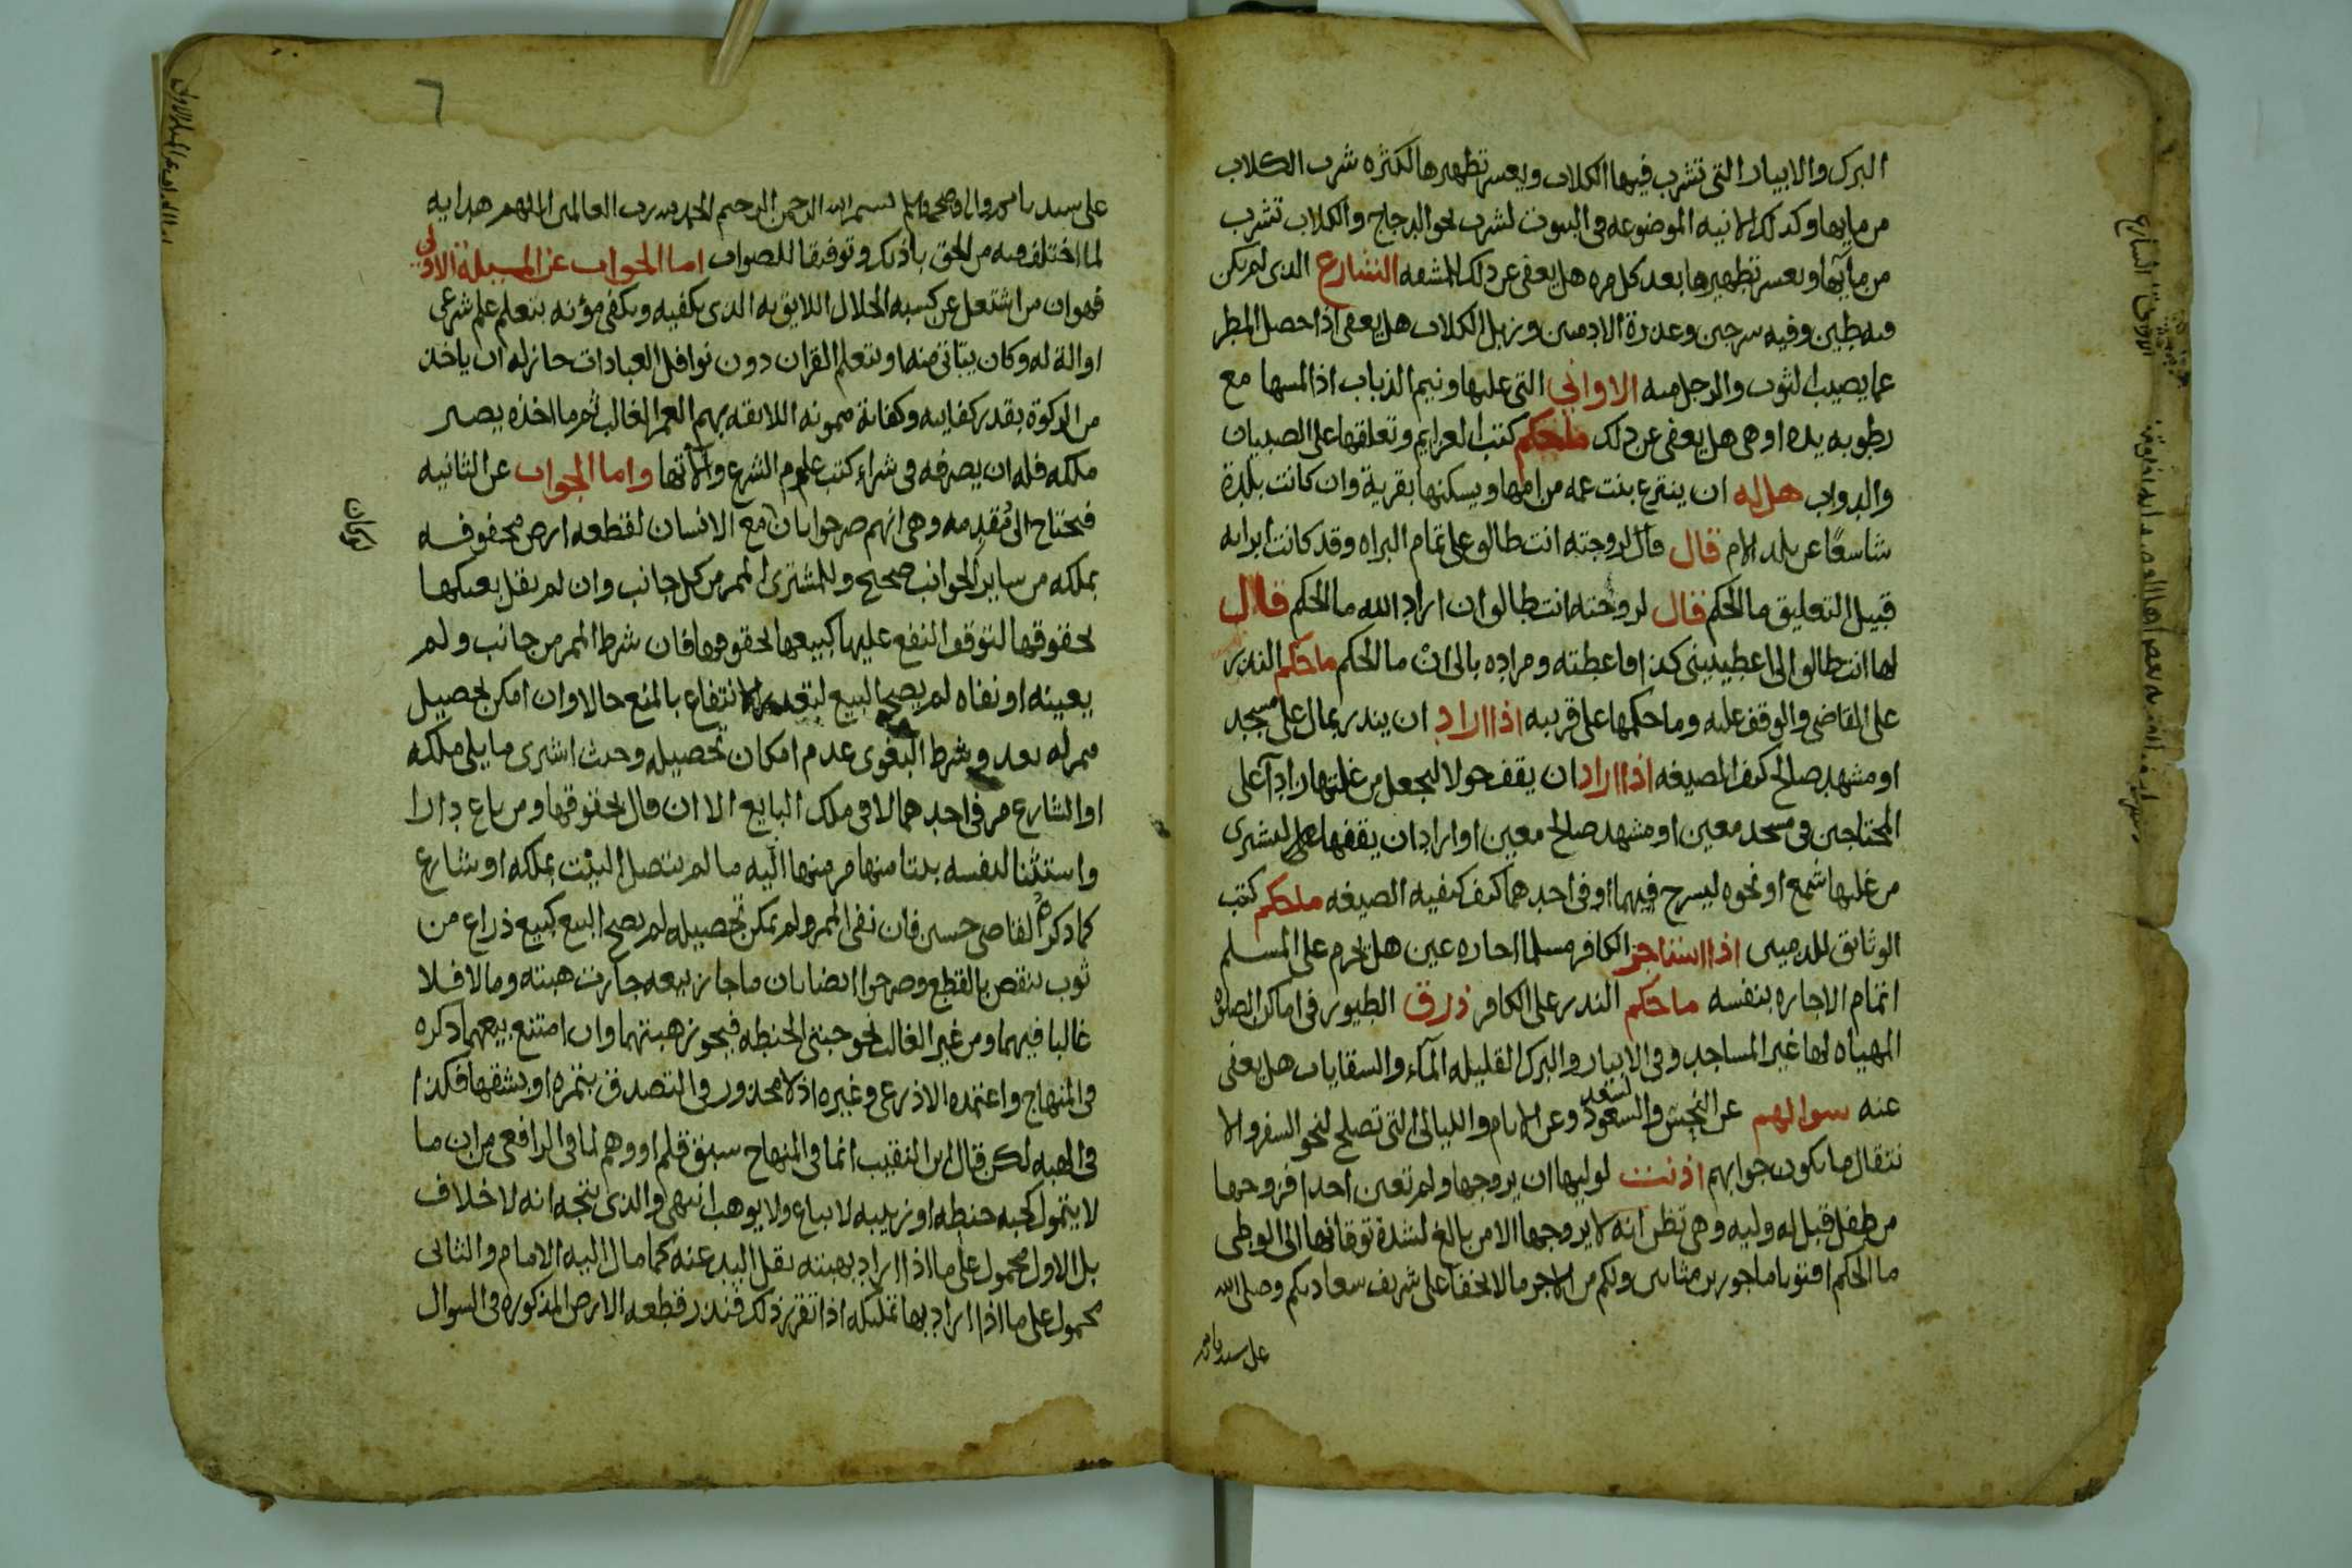 البرك والابيار التى تشرب فيها الكلاب ويعسر تطهيرها لكثره شرب الكلاب
من مايها وكذلك الانيه الموضوعه فى البيوت لشرب نحو الدجاج والكلاب تشرب
من مآيها ويعسر تطهيرها بعد كل مره هل يعفى عن ذلك للمشقه الشارع الذى لم يكن
فيه طين وفيه سرجين وعذرة الادميين وزبل الكلاب هل يعفى اذا حصل المطر
عما يصيب الثوب والرجل منه الاوانى التى عليها ونيم الذباب اذا لمسها مع
رطوبه يده او هى هل يعفى عن ذلك ما حكم كتب العزايم وتعلقها على الصبيان
والدواب هل له ان ينتزع بنت عمه من امها ويسكنها بقرية وان كانت بلدة
شاسعًا عن بلد الام قال قال لزوجته انت طالق على تمام البراه وقد كانت ابراته
قبيل التعليق ما الحكم قال لزوجته انت طالق ان اراد الله ما الحكم قال
لها انت طالق الى اعطيتينى كذا فاعطته ومراده بالى ان ما الحكم ما حكم النذر
على القاضى والوقف عليه وما حكمها على قريبه اذا اراد ان ينذر بمال على مسجد
او مشهد صالح كيف الصيغه اذا اراد ان يقف حولا ليجعل من غلتها زادآ على
المحتاجين فى مسجد معين او مشهد صالح معين او اراد ان يقفها على ليشترى
من غلتها شمع او نحوه ليسرج فيهما او فى احدهما كيف كيفيه الصيغه ما حكم كتب
الوثايق للذميين اذا استاجر الكافر مسلما اجاره عين هل يحرم على المسلم
اتمام الاجاره بنفسه ما حكم النذر على الكافر ذرق الطيور فى اماكن الصلوه
المهياه لها غير المساجد وفى الابيار والبرك القليله المآء والسقايات هل يعفى
عنه سوالهم عن النحس والسعود وعن الايام والليالى التى تصلح لنحو السفر والا
نتقال ما يكون جوابهم اذنت لوليها ان يزوجها ولم تعين احدا فزوجها
من طفل قبل له وليه وهى تظن انه لا يزوجها الا من بالغ لشدة توقانها الى الوطى
ما الحكم افتونا ماجورين مثابين ولكم من الاجر مالا يخفا على شريف سعادتكم وصلى الله
على سيدنا محمد
٦
على سيدنا محمد واله وصحبه وسلم بسم الله الرحمن الرحيم الحمد لله رب العالمين اللهم هدايه
لما اختلف فيه من الحق باذنك وتوفيقا للصواب اما الجواب عن المسيلة الاولى
فهو ان من اشتغل عن كسبه الحلال اللايق به الذى يكفيه ويكفى مؤنه بتعلم علم شرعى
او الة له وكان يتاتى منه او بتعلم القران دون نوافل العبادات جاز له ان ياخذ
من الزكوة بقدر كفايته وكفاية ممونه اللايقه بهم العمر الغالب ثم ما اخذه يصير
ملكه فله ان يصرفه فى شراء كتب علوم الشرع والآتها واما الجواب عن الثانيه
فيحتاج الى مقدمه وهى انهم صرحوا بان بيع الانسان لقطعه ارض محفوفه
بملكه من ساير الجوانب صحيح وللمشترى الممر من كل جانب وان لم يقل بعتكها
بحقوقها لتوقف النفع عليها كبيعها بحقوقها فان شرط الممر من جانب ولم
يعينه او نفاه لم يصح البيع لتعذر الانتفاع بالمنع حالا وان امكن تحصيل
ممر له بعد وشرط البغوى عدم امكان تحصيله وحيث اشترى ما يلى ملكه
او الشارع مر فى احدهما لا فى ملك البايع الا ان قال بحقوقها ومن باع دارا
واستثنا لنفسه بيتا منها مر منها اليه ما لم يتصل البيت بملكه او شارع
كما ذكره القاضى حسين فان نفى الممر ولم يمكن تحصيله لم يصح البيع كبيع ذراع من
ثوب ينقص بالقطع وصرحوا ايضا بان ما جاز بيعه جازت هبته وما لا فلا
غالبا فيهما ومن غير الغالب نحو حبتى الحنطه فيجوز هبتهما وان امتنع بيعهما ذكره
فى المنهاج واعتمده الاذرعى وغيره اذ لا محذور فى التصدق بتمره او بشقها فكذا
فى الهبه لكن قال ابن النقيب انما فى المنهاج سبق قلم او وهم لما فى الرافعى من ان ما
لا يتمول كحبه حنطه او زبيبه لا يباع ولا يوهب انتهى والذى يتجه انه لا خلاف
بل الاول محمول على ما اذا اراد بهبته نقل اليد عنه كما مال اليه الامام والثانى
محمول على ما اذا اراد بها تمليكه اذا تقرر ذلك فنذر قطعه الارض المذكوره فى السوال